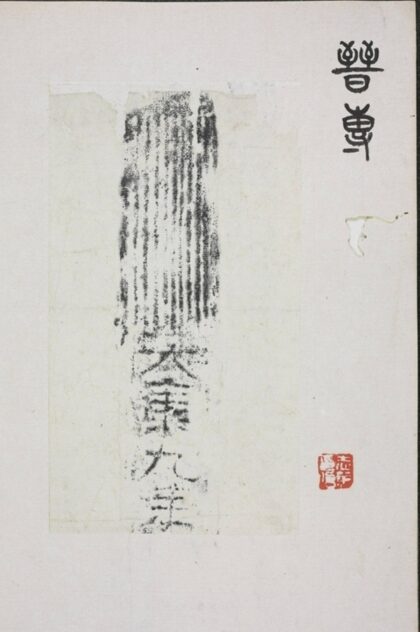 晉專
太康九年